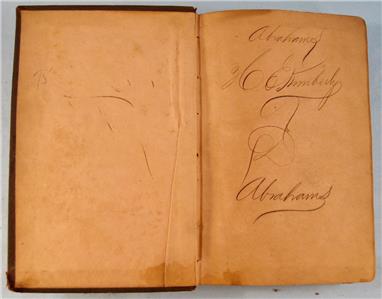 Abrahams
H C Kimberly
Abrahams